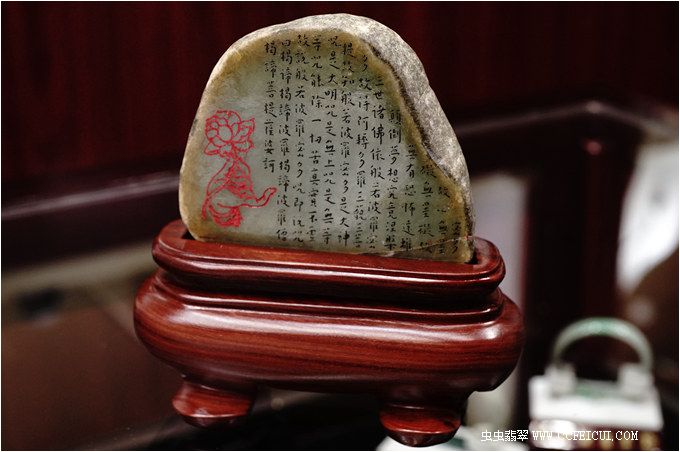 故心無罣
礙無罣礙故
無有恐怖遠離
顛倒夢想究竟涅槃
三世諸佛依般若波羅密
多故得阿耨多羅三藐三菩
提故知般若波羅密多是大神
咒是大明咒是無上咒是無等
等咒能除一切苦真實不虛
故說般若波羅密多咒即說咒
曰揭諦揭諦波羅揭諦波羅僧
揭諦菩提薩婆訶
虫虫翡翠 WWW.CCFEICUI.COM